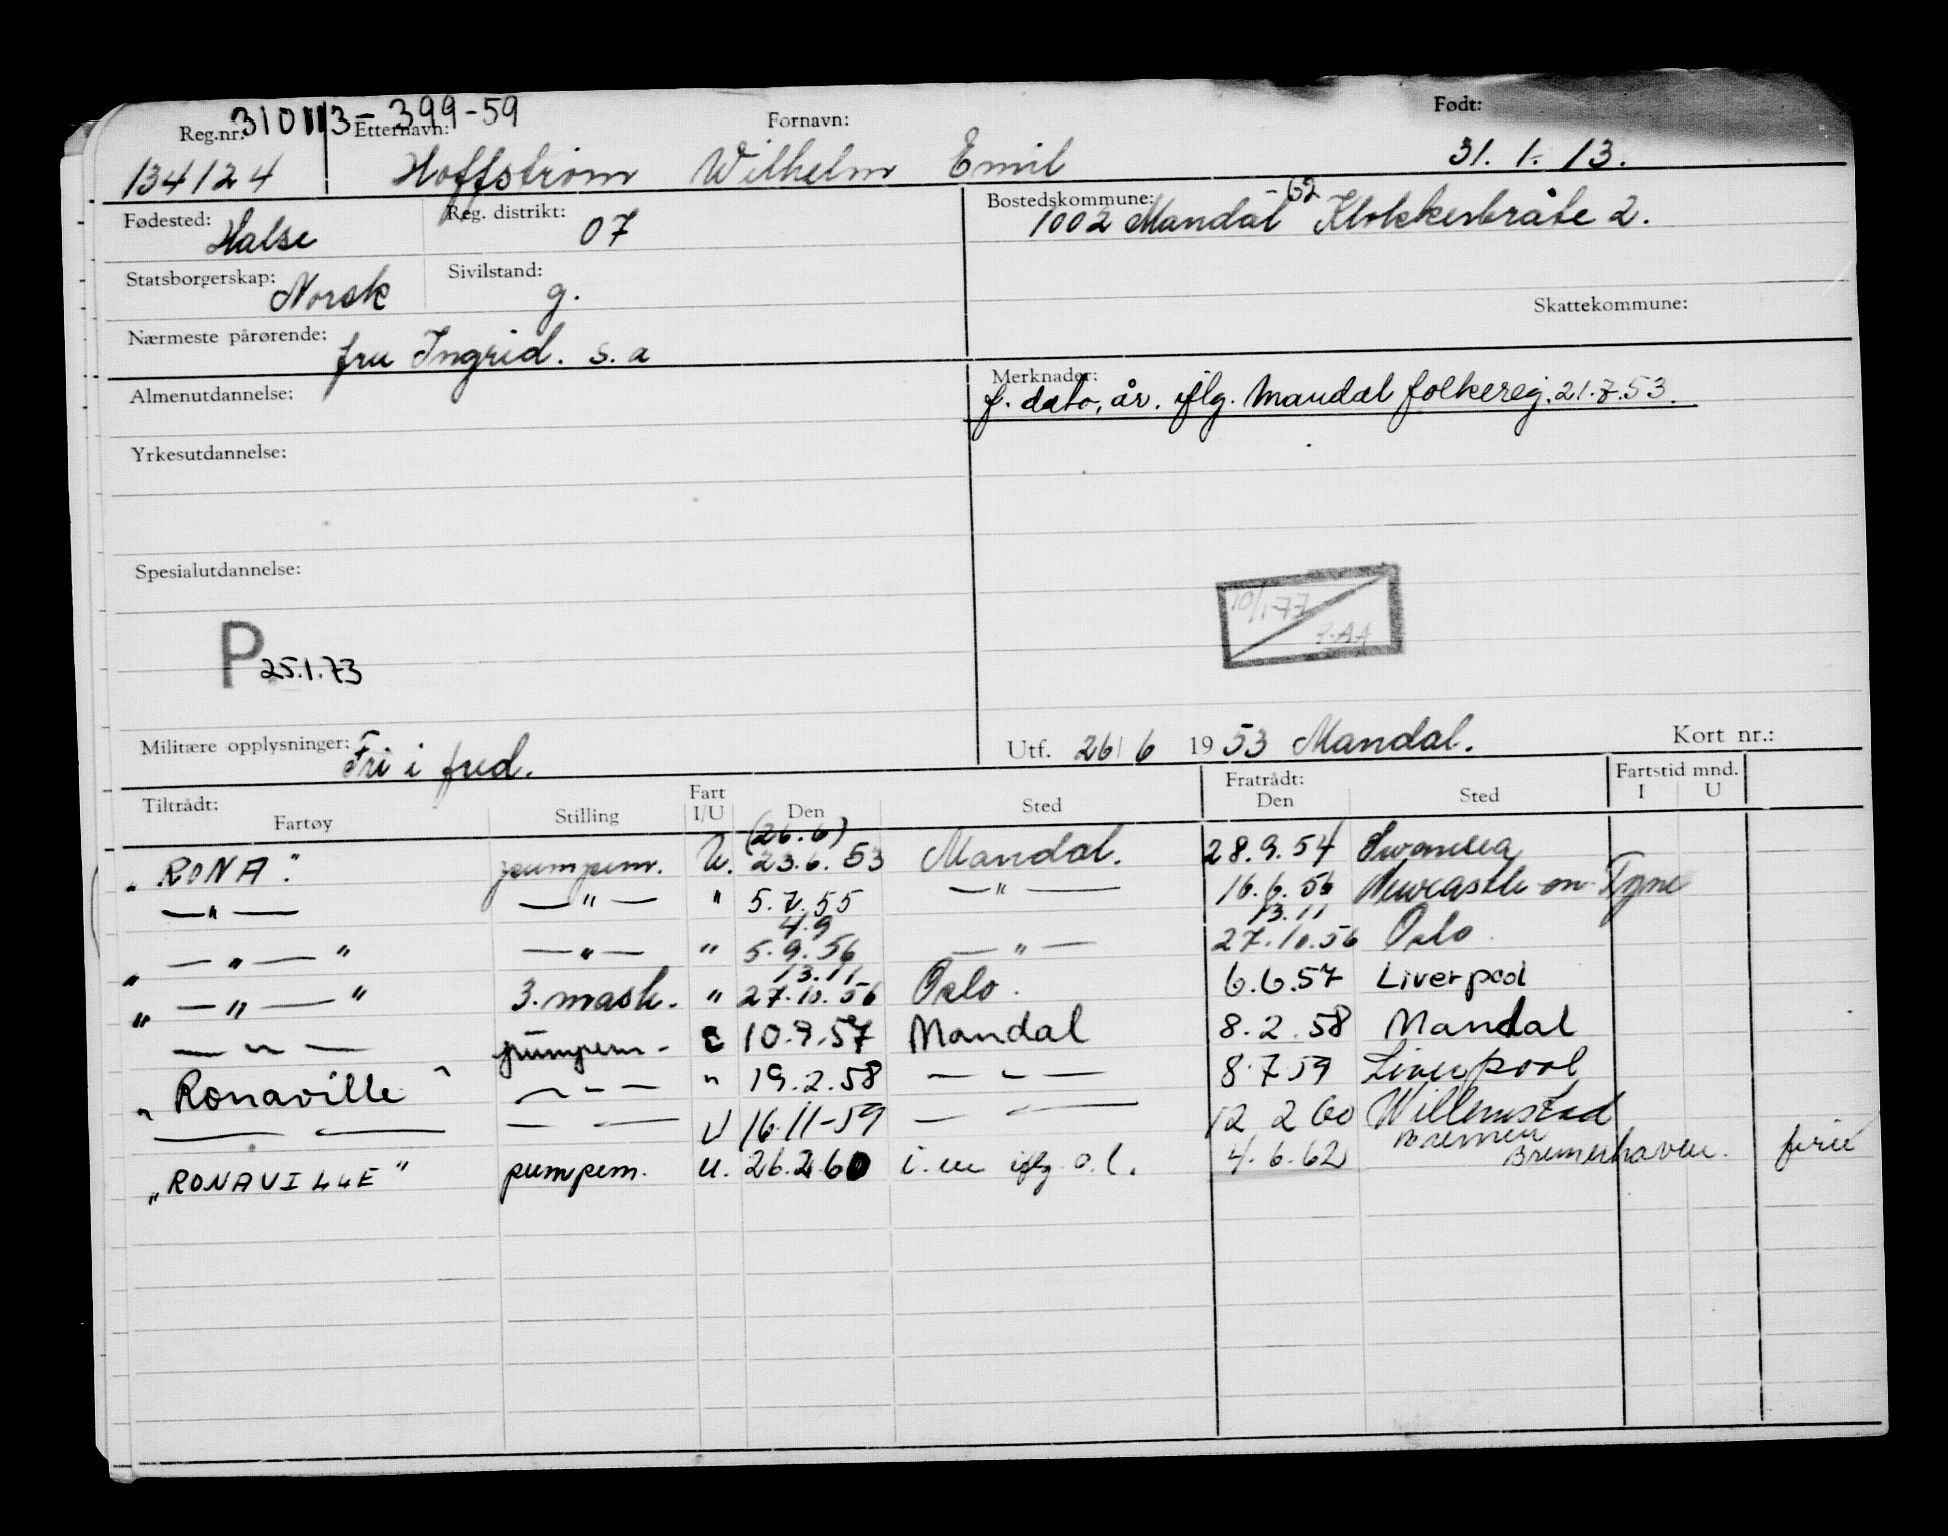 310113-399-59
Reg.nr. Etternavn: Fornavn: Født:
134124 Hoffstrøm Wilhelm Emil 31. 1. 13.
Fødested: Halse Reg. distrikt: 07 Bostedskommune: 1002 Mandal -62 Klokkesbråte 2.
Statsborgerskap: Norsk Sivilstand: g.
Skattekommune:
Nærmeste pårørende: fru Ingrid. s. a
Almenutdannelse: Merknader: f. dato, år. iflg. Mandal folkereg. 21.7.53.
Yrkesutdannelse:
Spesialutdannelse:
10/1-77
P 25.1.73
Militære opplysninger: Fri i fred. Utf. 26/6 1953 Mandal. Kort nr.:
Tiltrådt: Fratrådt: Fartstid mnd.
Fartøy Stilling Fart I/U Den Sted Den Sted I U
(26.6)
„RONA" pumpem. U. 23.6.53 Mandal. 28.9.54 Swansea
—"— —"— " 5.7.55 —"— 16.6.56 Newcastle-on-Tyne
4.9 13.11
„—"—" —"— " 5.9.56 —"— 27.10.56 Oslo
13.11
„—"—" 3. mask. " 27.10.56 Oslo. 6.6.57 Liverpool
—"— pumpem- E 10.9.57 Mandal 8.2.58 Mandal
„Ronaville" —"— " 19.2.58 —"— 8.7.59 Liverpool
— — — — U 16.11-59 — — 12 2 60 Willemstad
Bremen
„RONAVILLE" pumpem. u. 26.2.60 i. u iflg. o. l. 4.6.62 Bremerhaven. ferie